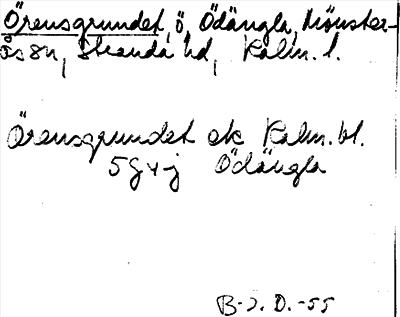 Örensgrundet, ö, Ödängla, Mönster-
ås sn, Stranda hd, Kalm. l.
Örensgrundet ek Kalm. bl.
5g4j Ödängla
B-J. D. -55